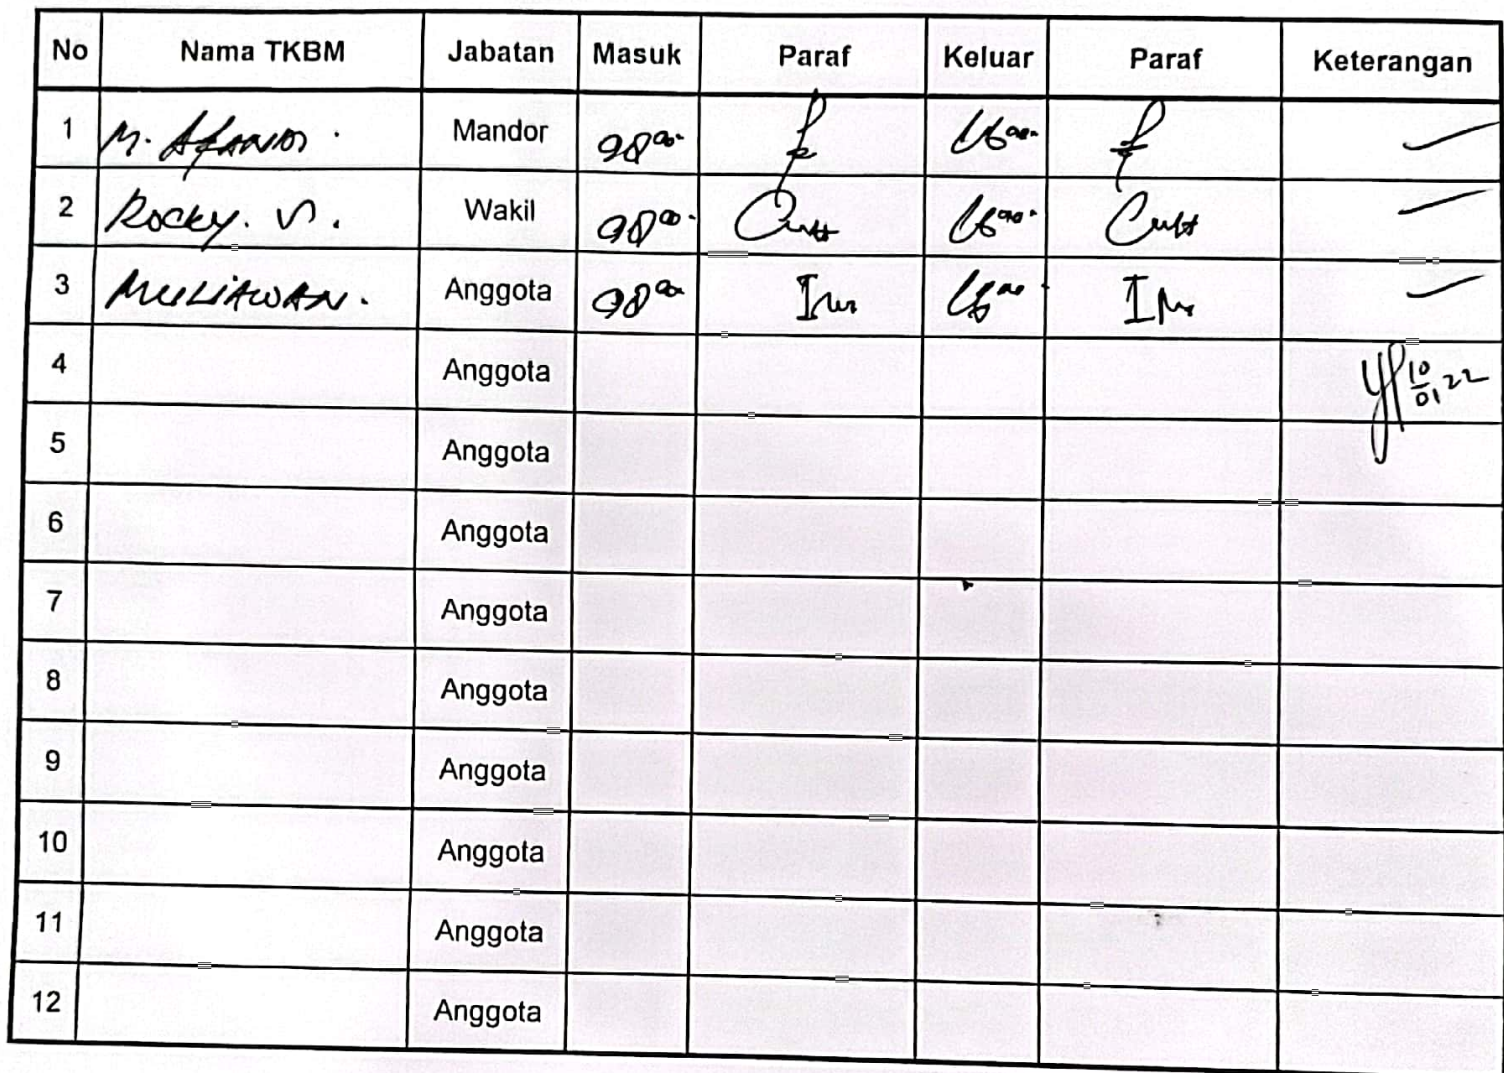 No Nama TKBM Jabatan Masuk Paraf Keluar Paraf Keterangan
1 M. Afandi. Mandor 08⁰⁰ 16⁰⁰
2 Rocky. V. Wakil 08⁰⁰ 16⁰⁰
3 MULIAWAN. Anggota 08⁰⁰ 16⁰⁰
4 Anggota 10/01 22
5 Anggota
6 Anggota
7 Anggota
8 Anggota
9 Anggota
10 Anggota
11 Anggota
12 Anggota